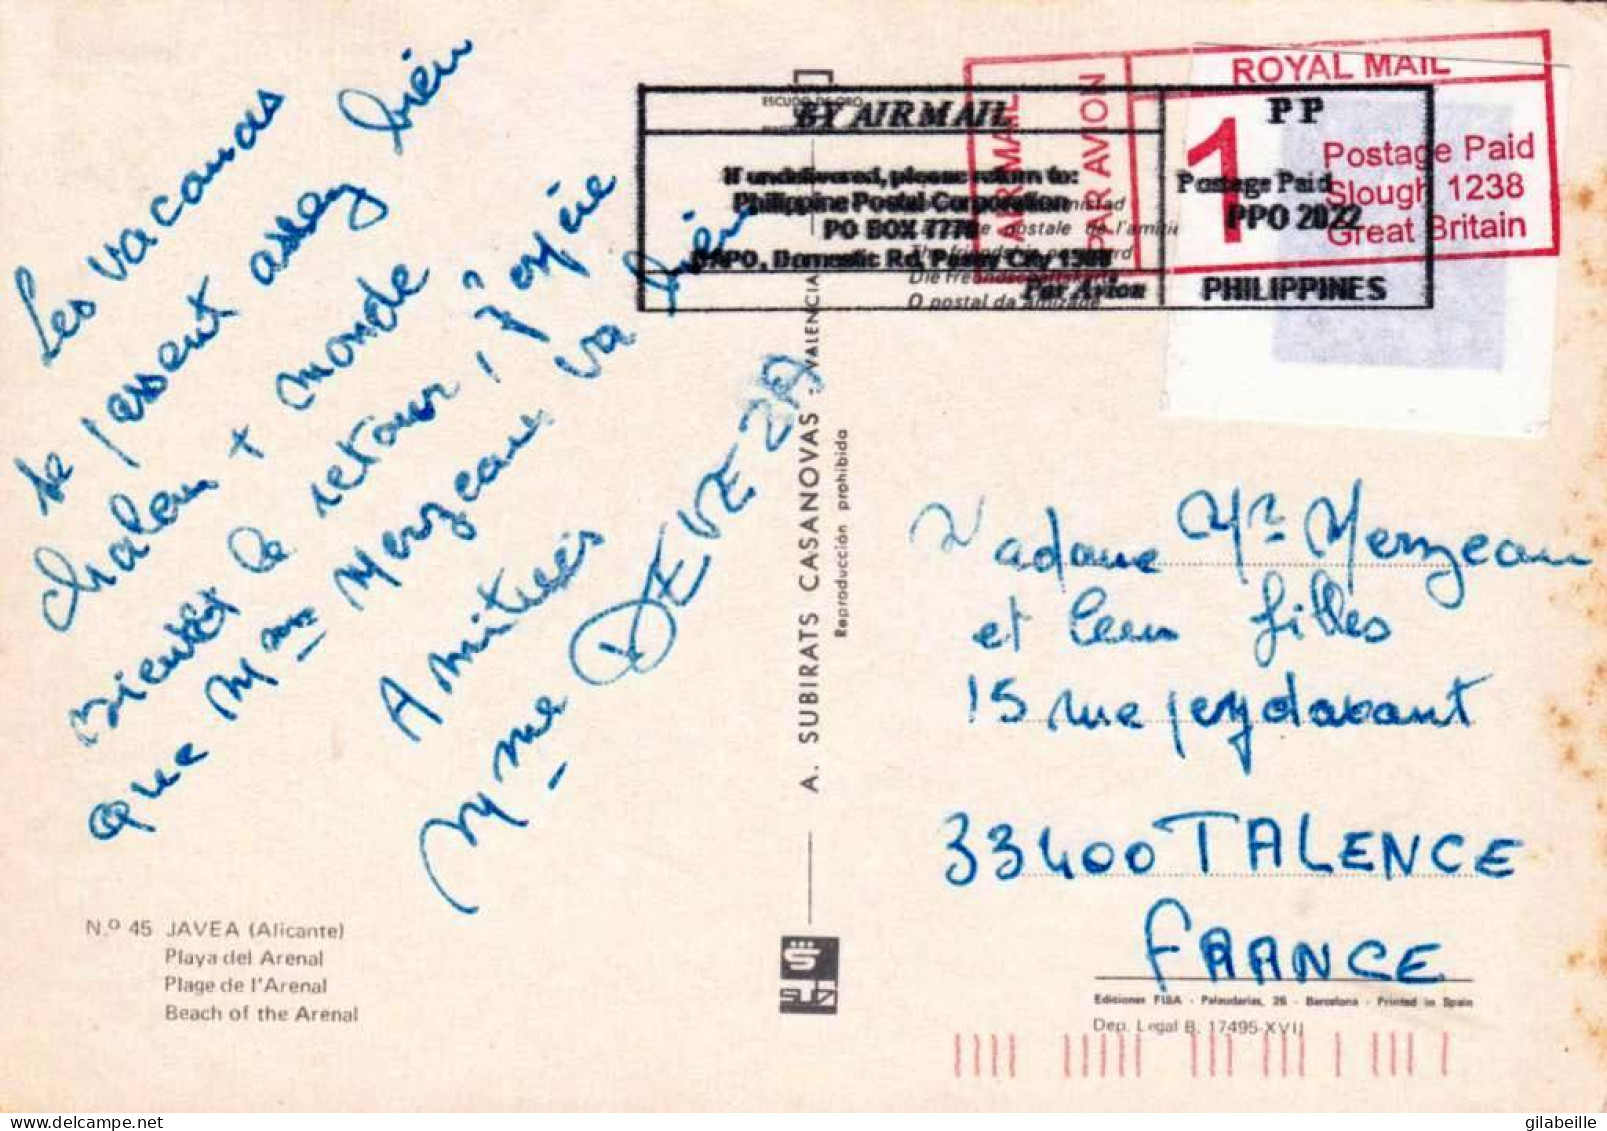 Les vacances
se passent assez bien
chaleur + monde
Bientôt le retour, j'espère
que Mme Merzeau va bien
Amitiés
Mme DEVEZA
ESCUDO DE ORO
BY AIRMAIL
If undelivered, please return to:
Philippine Postal Corporation
PO BOX 7770
DAPO, Domestic Rd, Pasay City 1300
Par Avion
PP
Postage Paid
PPO 2022
PHILIPPINES
AIR MAIL
PAR AVION
ROYAL MAIL
1
Postage Paid
Slough 1238
Great Britain
postale de l'amitié
Die Freundschaftskarte
O postal da Amizade
A. SUBIRATS CASANOVAS - VALENCIA
Reproducción prohibida
Madame Mr Merzeau
et leurs filles
15 rue peydavant
33400 TALENCE
FRANCE
N.º 45 JAVEA (Alicante)
Playa del Arenal
Plage de l'Arenal
Beach of the Arenal
Ediciones FISA - Palaudarias, 26 - Barcelona - Printed in Spain
Dep. Legal B. 17495-XVII
delcampe.net
gilabeille